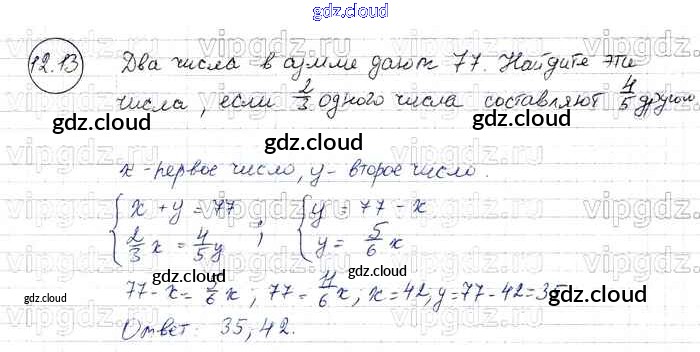 gdz.cloud
12.13 Два числа в сумме дают 77. Найдите эти
числа, если 2/3 одного числа составляют 4/5 другого.
gdz.cloud gdz.cloud
gdz.cloud
x - первое число, y - второе число.
{ x + y = 77 ; { y = 77 - x
{ 2/3 x = 4/5 y { y = 5/6 x
gdz.cloud gdz.cloud
77 - x = 5/6 x ; 77 = 11/6 x ; x = 42, y = 77 - 42 = 35
gdz.cloud gdz.cloud gdz.cloud
Ответ: 35, 42.